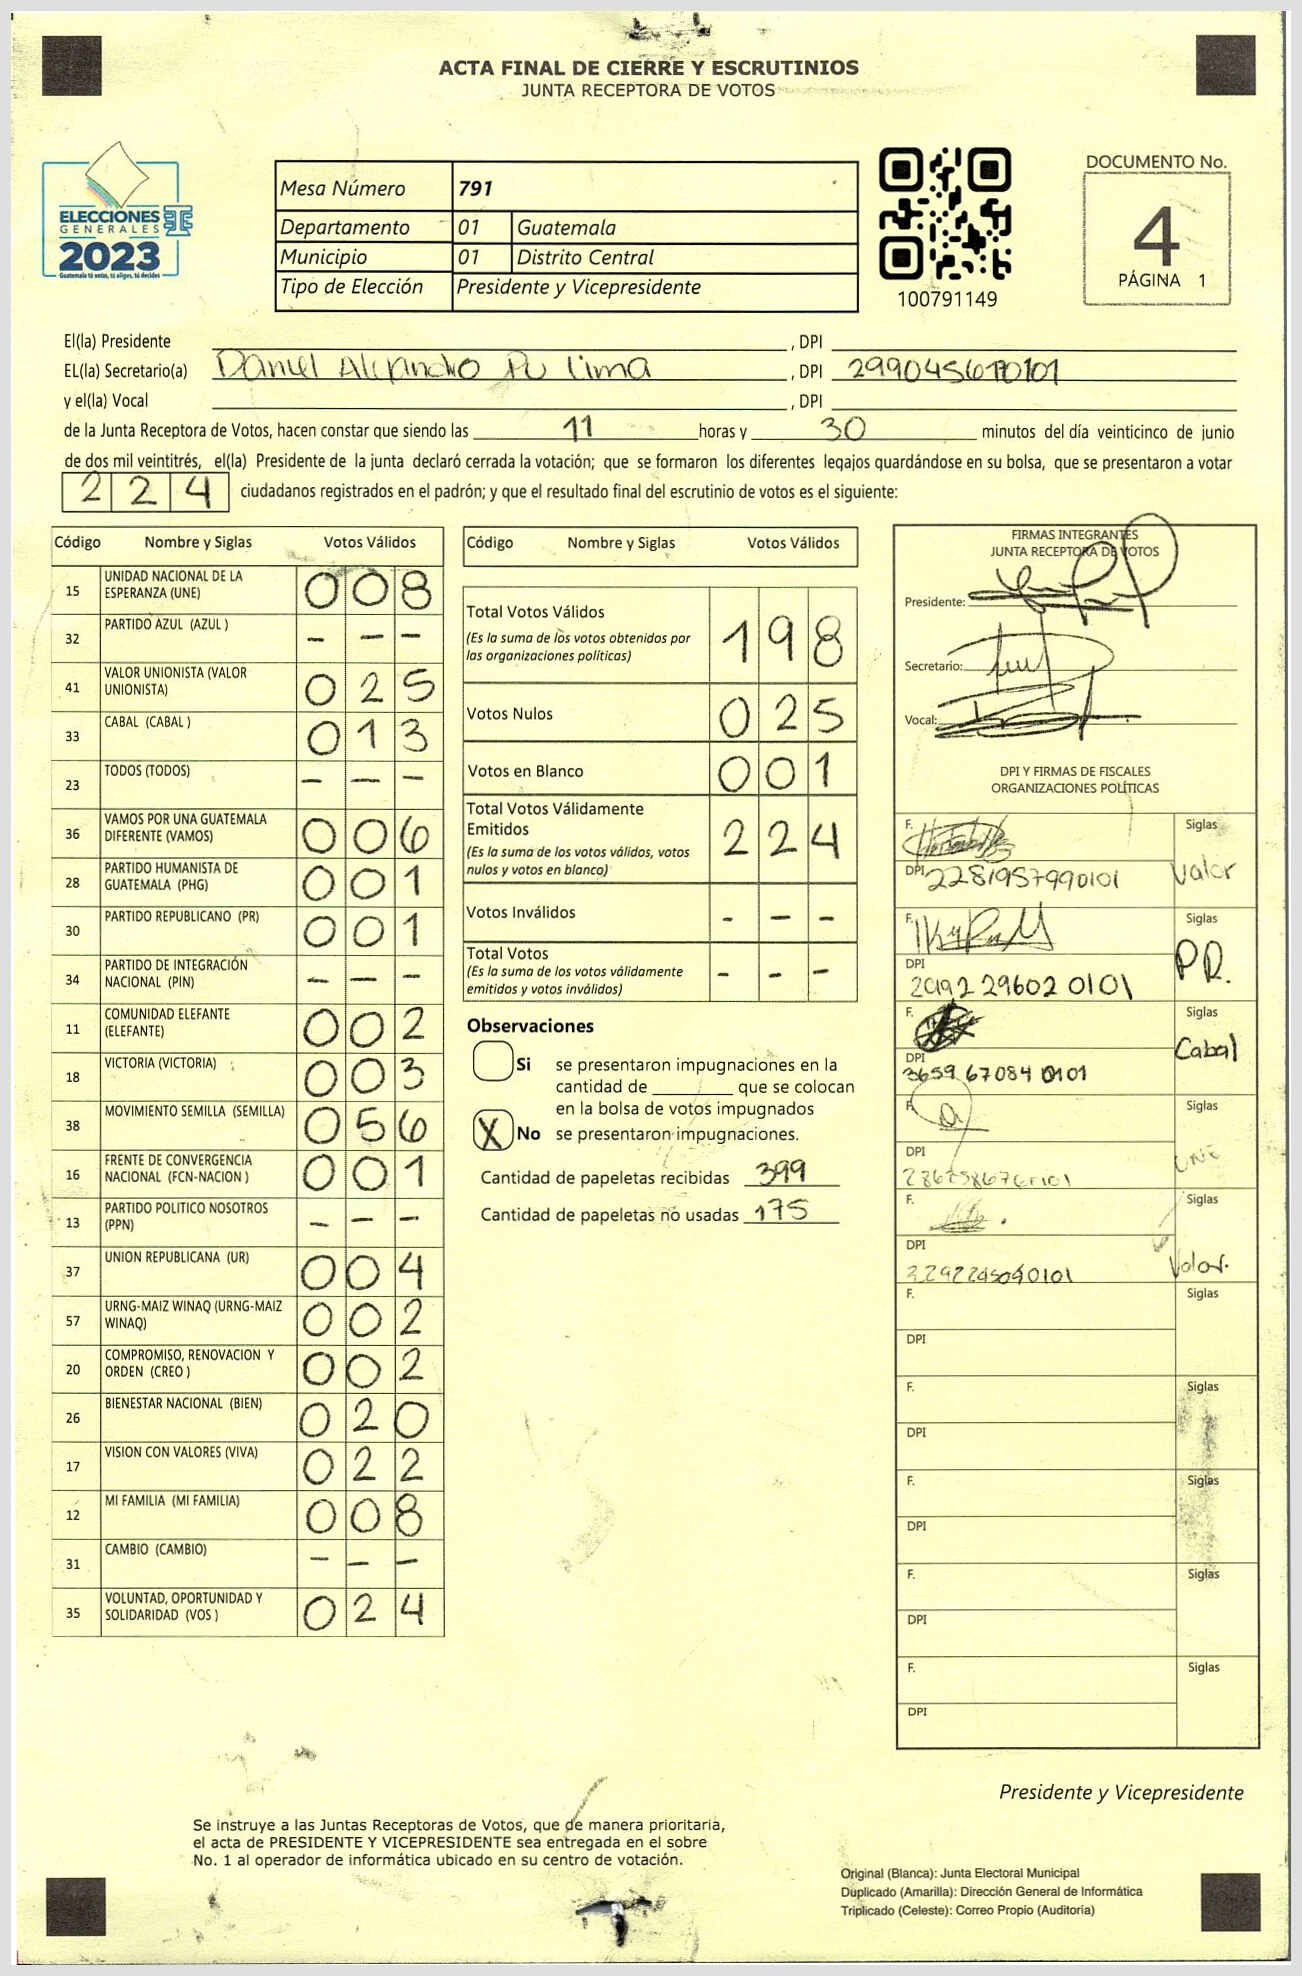 ACTA FINAL DE CIERRE Y ESCRUTINIOS
JUNTA RECEPTORA DE VOTOS
ELECCIONES
GENERALES
2023
Guatemala tú votas, tú eliges, tú decides
Mesa Número 791
Departamento 01 Guatemala
Municipio 01 Distrito Central
Tipo de Elección Presidente y Vicepresidente
100791149
DOCUMENTO No.
4
PÁGINA 1
El(la) Presidente , DPI
EL(la) Secretario(a) Daniel Alejandro Pu Lima , DPI
y el(la) Vocal , DPI
de la Junta Receptora de Votos, hacen constar que siendo las 11 horas y 30 minutos del día veinticinco de junio
de dos mil veintitrés, el(la) Presidente de la junta declaró cerrada la votación; que se formaron los diferentes legajos guardándose en su bolsa, que se presentaron a votar
224 ciudadanos registrados en el padrón; y que el resultado final del escrutinio de votos es el siguiente:
Código Nombre y Siglas Votos Válidos
15 UNIDAD NACIONAL DE LA ESPERANZA (UNE) 008
32 PARTIDO AZUL (AZUL ) - - -
41 VALOR UNIONISTA (VALOR UNIONISTA) 025
33 CABAL (CABAL ) 013
23 TODOS (TODOS) - - -
36 VAMOS POR UNA GUATEMALA DIFERENTE (VAMOS) 006
28 PARTIDO HUMANISTA DE GUATEMALA (PHG) 001
30 PARTIDO REPUBLICANO (PR) 001
34 PARTIDO DE INTEGRACIÓN NACIONAL (PIN) - - -
11 COMUNIDAD ELEFANTE (ELEFANTE) 002
18 VICTORIA (VICTORIA) 003
38 MOVIMIENTO SEMILLA (SEMILLA) 056
16 FRENTE DE CONVERGENCIA NACIONAL (FCN-NACION ) 001
13 PARTIDO POLITICO NOSOTROS (PPN) - - -
37 UNION REPUBLICANA (UR) 004
57 URNG-MAIZ WINAQ (URNG-MAIZ WINAQ) 002
20 COMPROMISO, RENOVACION Y ORDEN (CREO ) 002
26 BIENESTAR NACIONAL (BIEN) 020
17 VISION CON VALORES (VIVA) 022
12 MI FAMILIA (MI FAMILIA) 008
31 CAMBIO (CAMBIO) - - -
35 VOLUNTAD, OPORTUNIDAD Y SOLIDARIDAD (VOS ) 024
Código Nombre y Siglas Votos Válidos
Total Votos Válidos 198
(Es la suma de los votos obtenidos por
las organizaciones políticas)
Votos Nulos 025
Votos en Blanco 001
Total Votos Válidamente
Emitidos 224
(Es la suma de los votos válidos, votos
nulos y votos en blanco)
Votos Inválidos - - -
Total Votos - - -
(Es la suma de los votos válidamente
emitidos y votos inválidos)
Observaciones
Si se presentaron impugnaciones en la
cantidad de ________ que se colocan
en la bolsa de votos impugnados
X No se presentaron impugnaciones.
Cantidad de papeletas recibidas 399
Cantidad de papeletas no usadas 175
FIRMAS INTEGRANTES
JUNTA RECEPTORA DE VOTOS
Presidente:
Secretario:
Vocal:
DPI Y FIRMAS DE FISCALES
ORGANIZACIONES POLÍTICAS
F. Siglas
DPI 2281957990101 Valor
F. Siglas
DPI PR.
2092 29602 0101
F. Siglas
DPI Cabal
3659 67084 0101
F. Siglas
DPI UNE
F. Siglas
DPI Valor.
F. Siglas
DPI
F. Siglas
DPI
F. Siglas
DPI
F. Siglas
DPI
F. Siglas
DPI
Presidente y Vicepresidente
Se instruye a las Juntas Receptoras de Votos, que de manera prioritaria,
el acta de PRESIDENTE Y VICEPRESIDENTE sea entregada en el sobre
No. 1 al operador de informática ubicado en su centro de votación.
Original (Blanca): Junta Electoral Municipal
Duplicado (Amarilla): Dirección General de Informática
Triplicado (Celeste): Correo Propio (Auditoría)